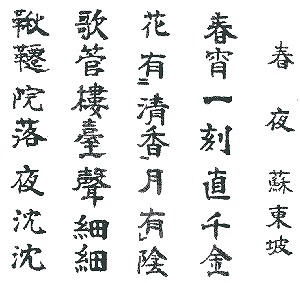 春夜 蘇東坡
春宵一刻直千金
花有清香月有陰
歌管樓臺聲細細
鞦韆院落夜沈沈